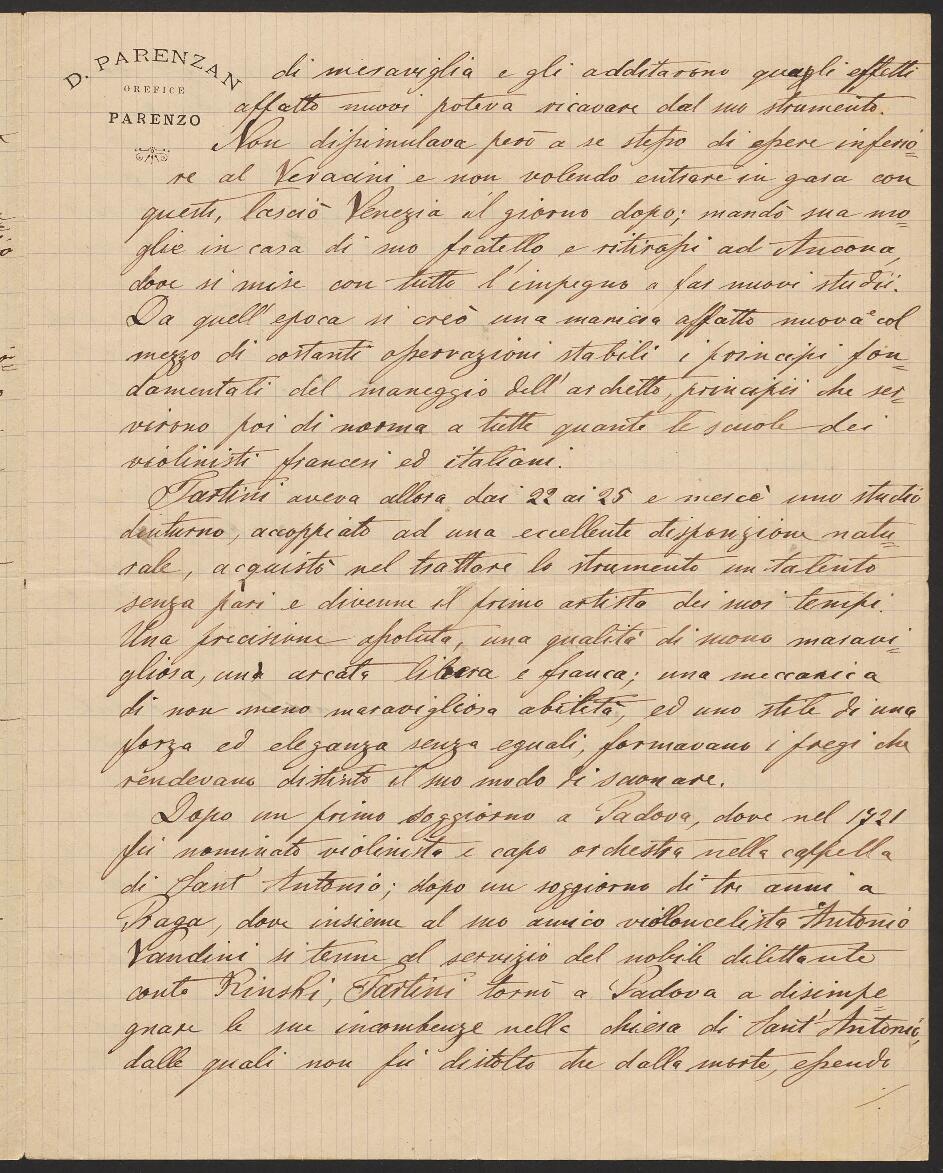 D. PARENZAN
OREFICE
PARENZO
di meraviglia e gli additarono quagli effetti
affatto nuovi poteva ricavare dal suo strumento.
Non dissimulava però a se stesso di essere inferio=
re al Veracini e non volendo entrare in gara con
questi, lasciò Venezia il giorno dopo; mandò sua mo=
glie in casa di suo fratello e ritirossi ad Ancona,
dove si mise con tutto l'impegno a far nuovi studii.
Da quell'epoca si creò una maniera affatto nuova e col
mezzo di costanti osservazioni stabilì i principi fon=
damentali del maneggio dell'archetto, principii che ser=
virono poi di norma a tutte quante le scuole dei
violinisti francesi ed italiani.
Tartini aveva allora dai 22 ai 25 e mercè uno studio
diuturno, accoppiato ad una eccellente disposizione natu=
rale, acquistò nel trattare lo strumento un talento
senza pari e divenne il primo artista dei suoi tempi.
Una precisione assoluta, una qualità di suono maravi=
gliosa, una arcata libera e franca; una meccanica
di non meno maravigliosa abilità, ed uno stile di una
forza ed eleganza senza eguali, formavano i fregi che
rendevano distinto il suo modo di suonare.
Dopo un primo soggiorno a Padova, dove nel 1721
fu nominato violinista e capo orchestra nella cappella
di Sant'Antonio; dopo un soggiorno di tre anni a
Praga, dove insieme al suo amico violoncelista Antonio
Vandini si tenne al servizio del nobile dilettante
conte Kinski, Tartini tornò a Padova a disimpe=
gnare le sue incombenze nella chiesa di Sant'Antonio,
dalle quali non fu distolto che dalla morte, essendo
./.